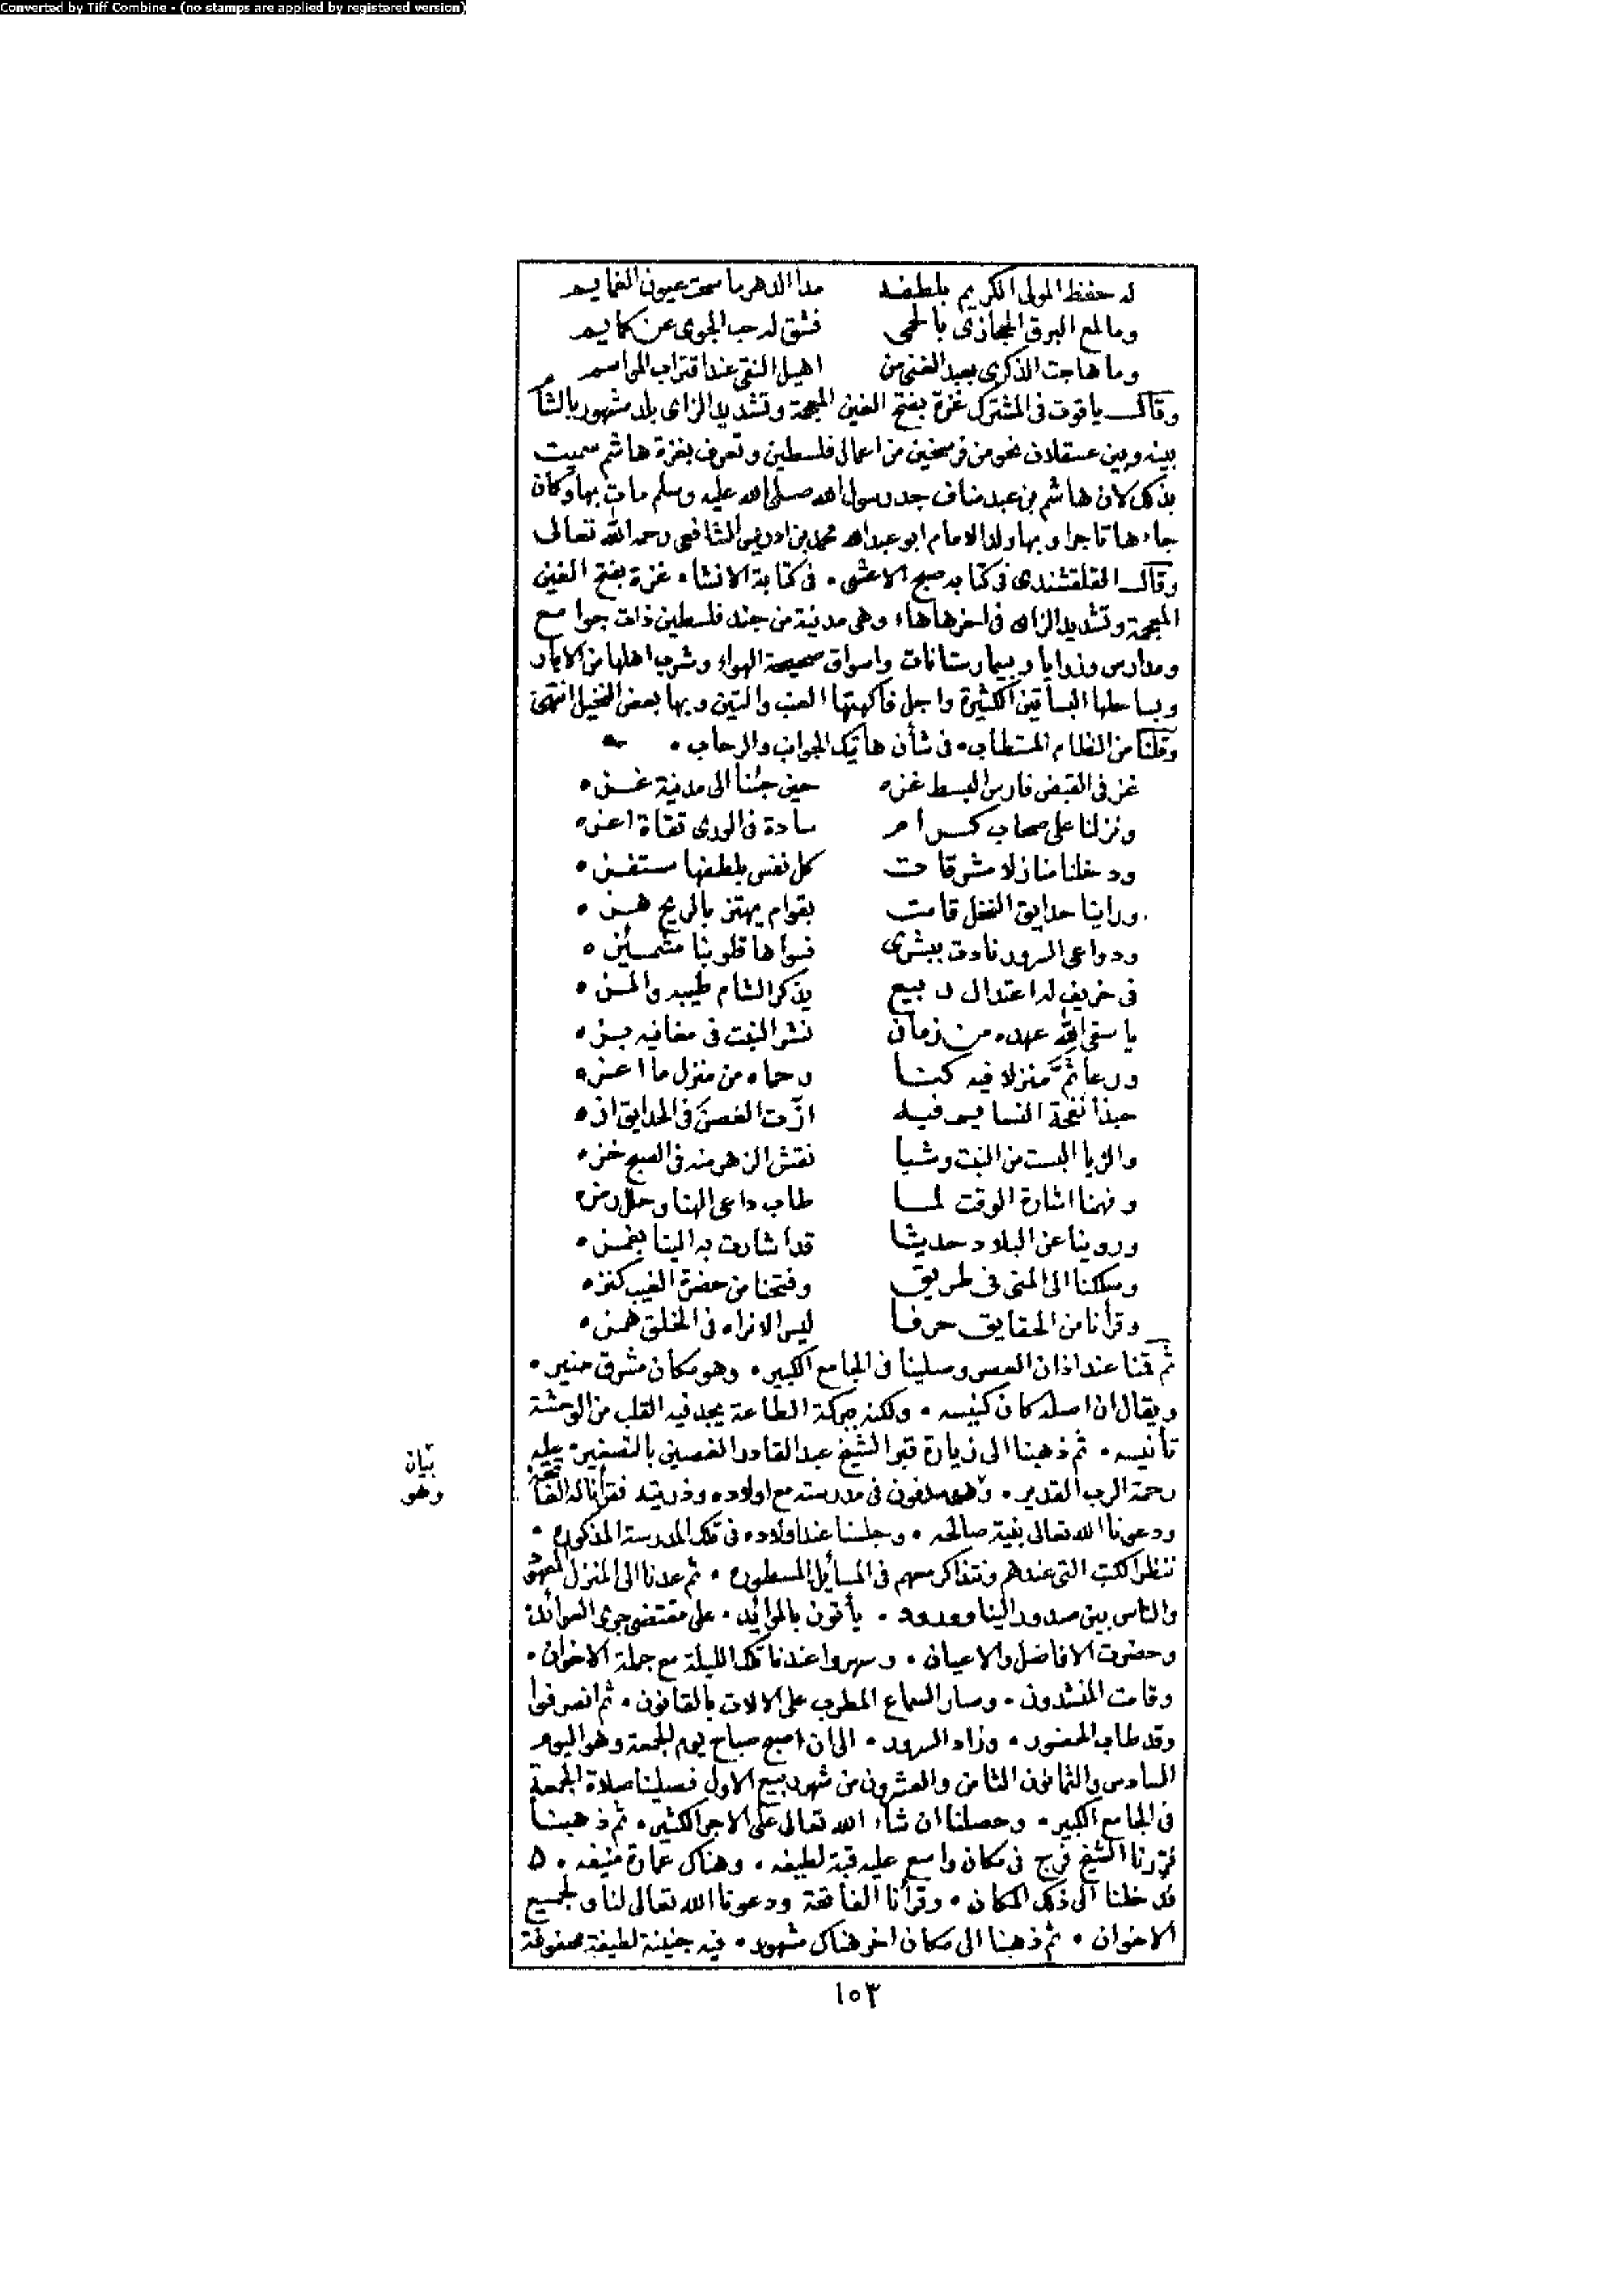 Converted by Tiff Combine - (no stamps are applied by registered version)
له حفظ المولى الكريم بلطفه مدا الدهر ما سحت عيون الغمايم
وما لمع البرق الحجازى بالحمى فشق له جب الجوى عن كمايم
وما هاجت الذكرى بعبد الغنى من اهيل النقى عند اقتراب المواسم
وقال ياقوت فى المشترك غزة بفتح الغين المعجمة وتشديد الزاى بلد مشهور بالشام
بينه وبين عسقلان نحو من فرسخين من اعمال فلسطين وتعرف بغزة هاشم سميت
بذلك لان هاشم بن عبد مناف جد رسول الله صلى الله عليه وسلم مات بها وكان
جاءها تاجرا وبها ولد الامام ابو عبدالله محمد بن ادريس الشافعى رحمه الله تعالى
وقال القلقشندى فى كتابه صبح الاعشى • فى كتابة الانشاء • غزة بفتح الغين
المعجمة وتشديد الزاى فى اخرها هاء وهى مدينة من جند فلسطين ذات جوامع
ومدارس وزوايا وبيمارستانات واسواق صحيحة الهواء وشرب اهلها من الابار
وبساحلها البساتين الكثيرة واجل فاكهتها العنب والتين وبها بعض النخيل انتهى
وقلنا من النظام المستطاب • فى شأن هاتيك الجوانب والرحاب •
غز فى القبض فارس البسط غزه حين جئنا الى مدينة غزه
ونزلنا على صحاب كرام سادة فى الورى تقاة اعزه
ودخلنا منازلا مشرقات كل نفس بلطفها مستفزه
وراينا حدايق النخل قامت بقوام يهتز بالريح هزه
ودواعى السرور نادت ببشرى فسواها قلوبنا مشمئزه
فى خريف له اعتدال ربيع يذكر الشام طيبه والمزه
يا سقى الله عهده من زمان نشر النبت فى مغانيه بزه
ورعا ثم منزلا فيه كنا وحماه من منزل ما اعزه
حبذا نفحة النسايم فيه ازت الغصن فى الحدايق ازه
والربا البست من النبت وشيا نقش الزهر منه فى الصبح خزه
وفهمنا اشارة الوقت لما طاب داعى الهنا وحل رمزه
وروينا عن البلاد حديثا قد اشارت به الينا بغمزه
وسلكنا الى المنى فى طريق وفتحنا من حضرة الغيب كنزه
وقرأنا من الحقايق حرفا ليس الا نراه فى الخلق همزه
ثم قمنا عند اذان العصر وصلينا فى الجامع الكبير • وهو مكان مشرق منير •
ويقال ان اصله كان كنيسه • ولكنه ببركة الطاعة يجد فيه القلب من الوحشة
تأنيسه • ثم ذهبنا الى زيارة قبر الشيخ عبد القادر الغصين بالتصغير • عليه
رحمة الرب القدير • وهو مدفون فى مدرسته مع اولاده وذريته فقرأنا له الفاتحة
ودعونا الله تعالى بنية صالحه • وجلسنا عند اولاده فى تلك المدرسة المذكوره •
ننظر الكتب التى عندهم ونتذاكر معهم فى المسائل المسطوره • ثم عدنا الى المنزل المعهود
والناس بين صدور الينا وورود • يأتون بالموائد • على مقتضى جرى العوائد •
وحضرت الافاضل والاعيان • وسهروا عندنا تلك الليلة مع جملة الاخوان •
وقامت المنشدون • وسار السماع المطرب على الالات بالقانون • ثم انصرفوا
وقد طاب الحضور • وزاد السرور • الى ان اصبح صباح يوم الجمعة وهو اليوم
السادس والثمانون الثامن والعشرون من شهر ربيع الاول فصلينا صلاة الجمعة
فى الجامع الكبير • وحصلنا ان شاء الله تعالى على الاجر الكثير • ثم ذهبنا
فزرنا الشيخ فرج فى مكان واسع عليه قبة لطيفه • وهناك عمارة منيفه •
فدخلنا الى ذلك المكان • وقرأنا الفاتحة ودعونا الله تعالى لنا ولجميع
الاخوان • ثم ذهبنا الى مكان اخر هناك مشهود • فيه جنينة لطيفة محفوفة
بيان
وهو
١٥٣